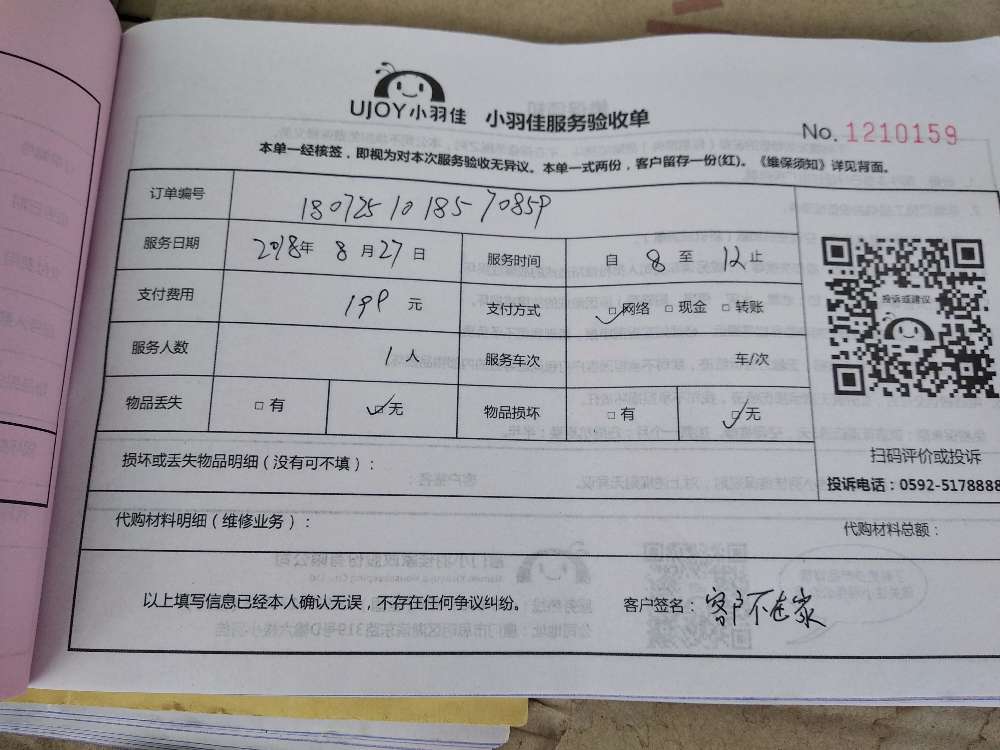 UJOY小羽佳 小羽佳服务验收单
No. 1210159
本单一经核签，即视为对本次服务验收无异议。本单一式两份，客户留存一份(红)。《维保须知》详见背面。
订单编号 1807251018570859
服务日期 2018年 8月27日 服务时间 自 8 至 12止
支付费用 199 元 支付方式 □网络 □现金 □转账
服务人数 1人 服务车次 车/次
物品丢失 □有 □无 物品损坏 □有 □无
投诉或建议
扫码评价或投诉
投诉电话：0592-5178888
损坏或丢失物品明细（没有可不填）：
代购材料明细（维修业务）： 代购材料总额：
以上填写信息已经本人确认无误，不存在任何争议纠纷。 客户签名：客户不在家